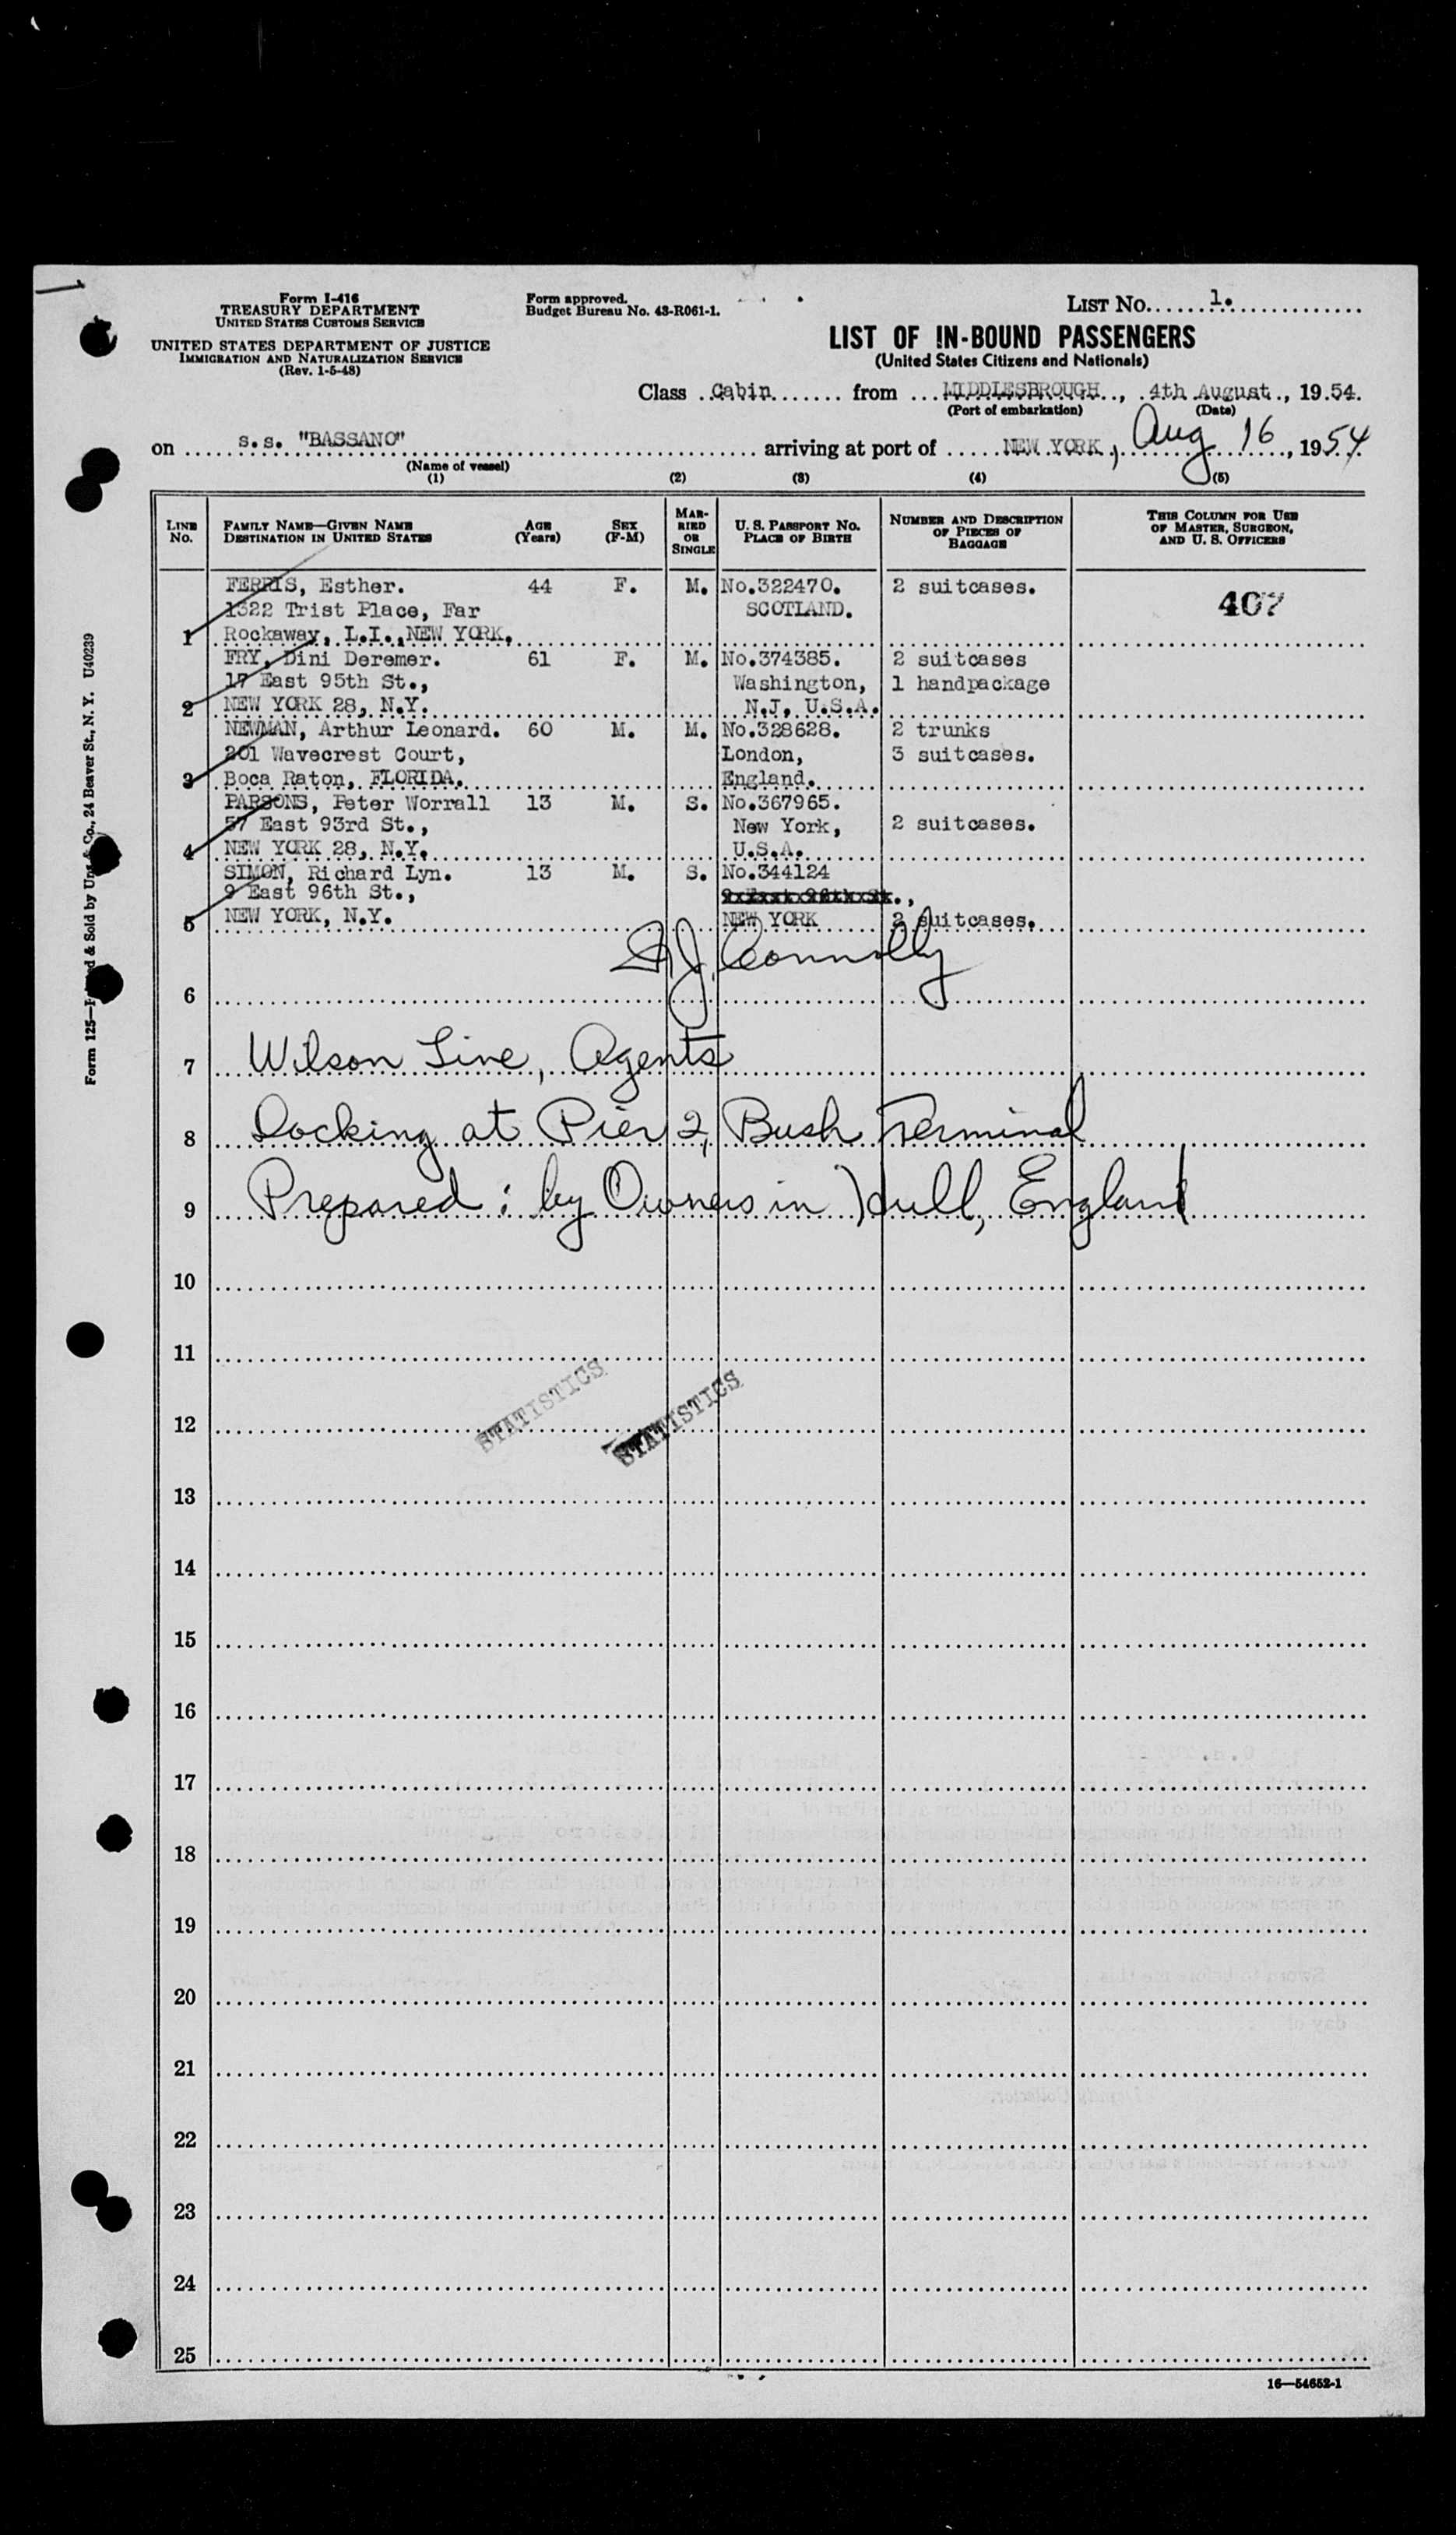 Form I-416
TREASURY DEPARTMENT
UNITED STATES CUSTOMS SERVICE
UNITED STATES DEPARTMENT OF JUSTICE
IMMIGRATION AND NATURALIZATION SERVICE
(Rev. 1-5-48)
Form approved.
Budget Bureau No. 43-R061-1.
LIST No. 1.
LIST OF IN-BOUND PASSENGERS
(United States Citizens and Nationals)
Class Cabin from MIDDLESBROUGH, 4th August, 1954.
(Port of embarkation) (Date)
on s.s. "BASSANO" arriving at port of NEW YORK, Aug 16, 1954
(Name of vessel)
(1) (2) (3) (4) (5)
LINE No. FAMILY NAME—GIVEN NAME DESTINATION IN UNITED STATES AGE (Years) SEX (F-M) MARRIED OR SINGLE U. S. PASSPORT No. PLACE OF BIRTH NUMBER AND DESCRIPTION OF PIECES OF BAGGAGE THIS COLUMN FOR USE OF MASTER, SURGEON, AND U. S. OFFICERS
FERRIS, Esther. 44 F. M. No.322470. 2 suitcases. 407
1322 Trist Place, Far SCOTLAND.
1 Rockaway, L.I., NEW YORK.
FRY, Dini Deremer. 61 F. M. No.374385. 2 suitcases
17 East 95th St., Washington, 1 handpackage
2 NEW YORK 28, N.Y. N.J. U.S.A.
NEWMAN, Arthur Leonard. 60 M. M. No.328628. 2 trunks
201 Wavecrest Court, London, 3 suitcases.
3 Boca Raton, FLORIDA. England.
PARSONS, Peter Worrall 13 M. S. No.367965.
57 East 93rd St., New York, 2 suitcases.
4 NEW YORK 28, N.Y. U.S.A.
SIMON, Richard Lyn. 13 M. S. No.344124
9 East 96th St.,
5 NEW YORK, N.Y. NEW YORK 2 suitcases.
J. Connolly
6
7 Wilson Line, Agents
8 Docking at Pier 2, Bush Terminal
9 Prepared: by Owners in Hull, England
10
11
STATISTICS STATISTICS
12
13
14
15
16
17
18
19
20
21
22
23
24
25
16—54652-1
Form 125— & Sold by Co., 24 Beaver St., N. Y. U40239